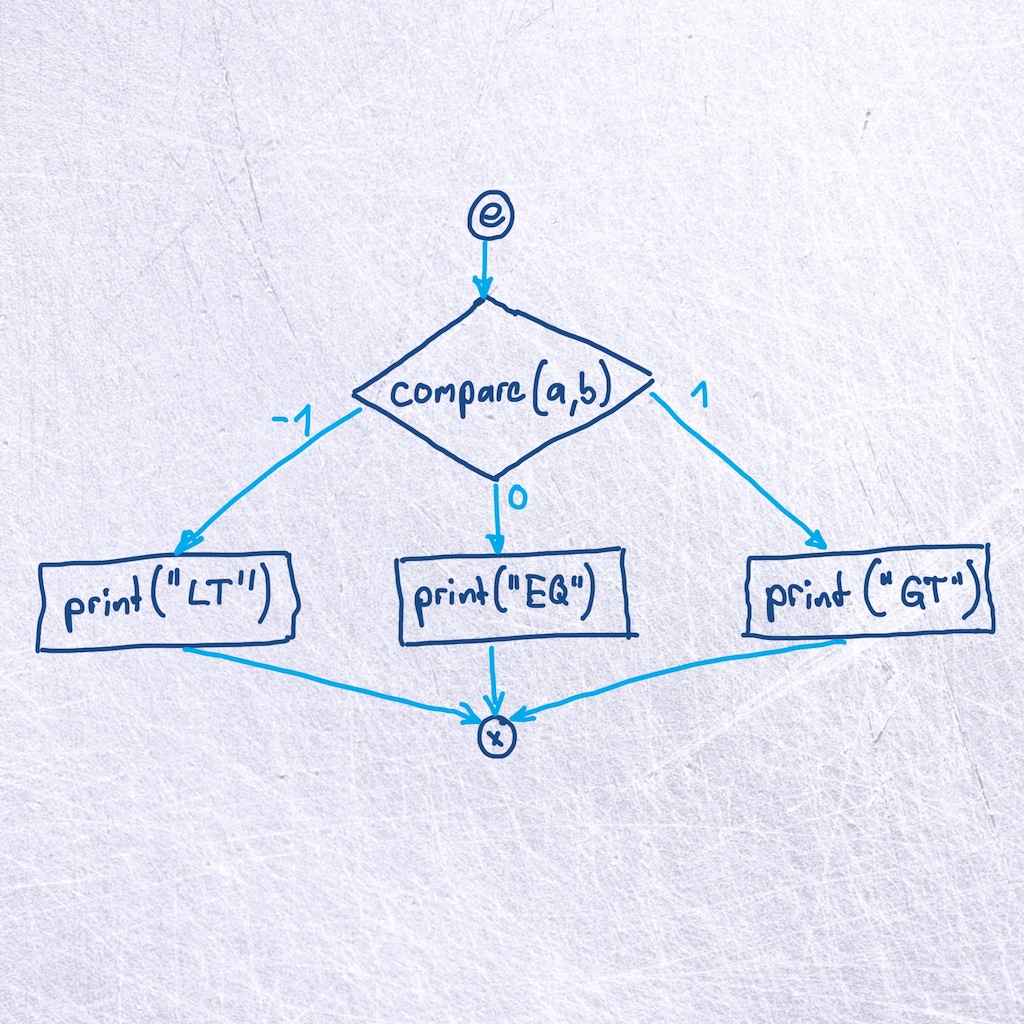 e
compare(a,b)
-1
1
0
print("LT")
print("EQ")
print ("GT")
x